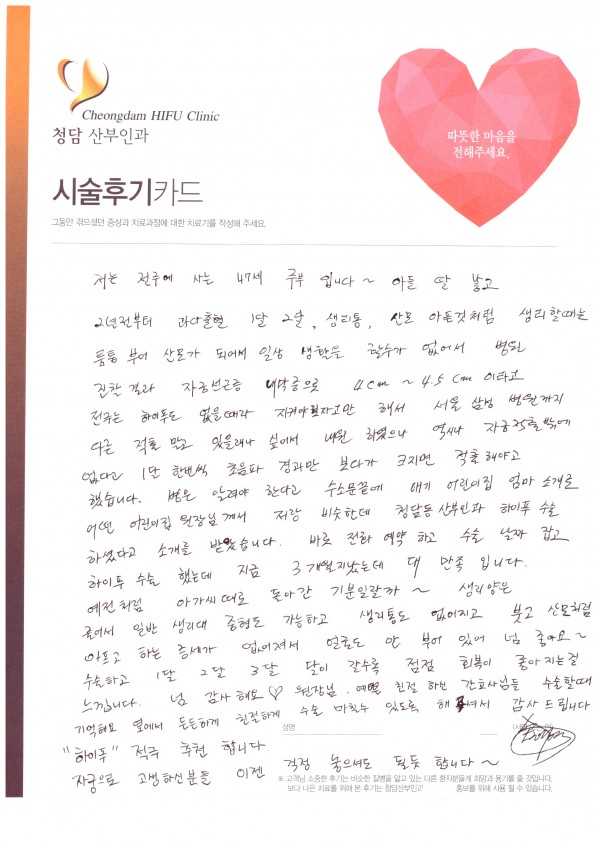 Cheongdam HIFU Clinic
청담 산부인과
따뜻한 마음을
전해주세요.
시술후기카드
그동안 겪으셨던 증상과 치료과정에 대한 치료기를 작성해 주세요.
저는 전주에 사는 47세 주부 입니다~ 아들 딸 낳고
2년전부터 과다출혈 1달 2달, 생리통, 산모 아픈것처럼 생리할때는
퉁퉁 부어 산모가 되어서 일상 생활을 할수가 없어서 병원
진찰 결과 자궁선근증 내막증으로 4cm ~ 4.5cm 이라고
전주는 하이푸도 없을때라 지켜야 하자고만 해서 서울 삼성 병원까지
다른 적출 말고 있을래나 싶어서 내원 하였으나 역시나 자궁적출밖에
없다고 1달 한번씩 초음파 경과만 보다가 크지면 적출해야고
했습니다. 병은 알려야 한다고 수소문끝에 애기 어린이집 엄마 소개로
어떤 어린이집 원장님께서 저랑 비슷한데 청담동 산부인과 하이푸 수술
하셨다고 소개를 받았습니다. 바로 전화 예약 하고 수술 날짜 잡고
하이푸 수술 했는데 지금 3개월지났는데 대 만족 입니다.
예전처럼 아가씨때로 돌아간 기분일랄까~ 생리양은
줄어서 일반 생리대 중형도 가능하고 생리통도 없어지고 붓고 산모처럼
아프고 하는 증세가 없어져서 얼굴도 안 부어 있어 넘 좋아요~
수술하고 1달 2달 3달 달이 갈수록 점점 회복이 좋아지는걸
느낍니다. 넘 감사해요♡ 원장님. 예쁜 친절 하신 간호사님들 수술할때
기억해요 옆에서 든든하게 친절하게 수술 마칠수 있도록 해 주셔서 감사 드립니다
성명
"하이푸" 적극 추천 합니다
자궁으로 고생하신분들 이젠 걱정 놓으셔도 될듯 합니다~
※ 고객님 소중한 후기는 비슷한 질병을 앓고 있는 다른 환자분들께 희망과 용기를 줄 것입니다.
보다 나은 치료를 위해 본 후기는 청담산부인과 홍보를 위해 사용 될 수 있습니다.